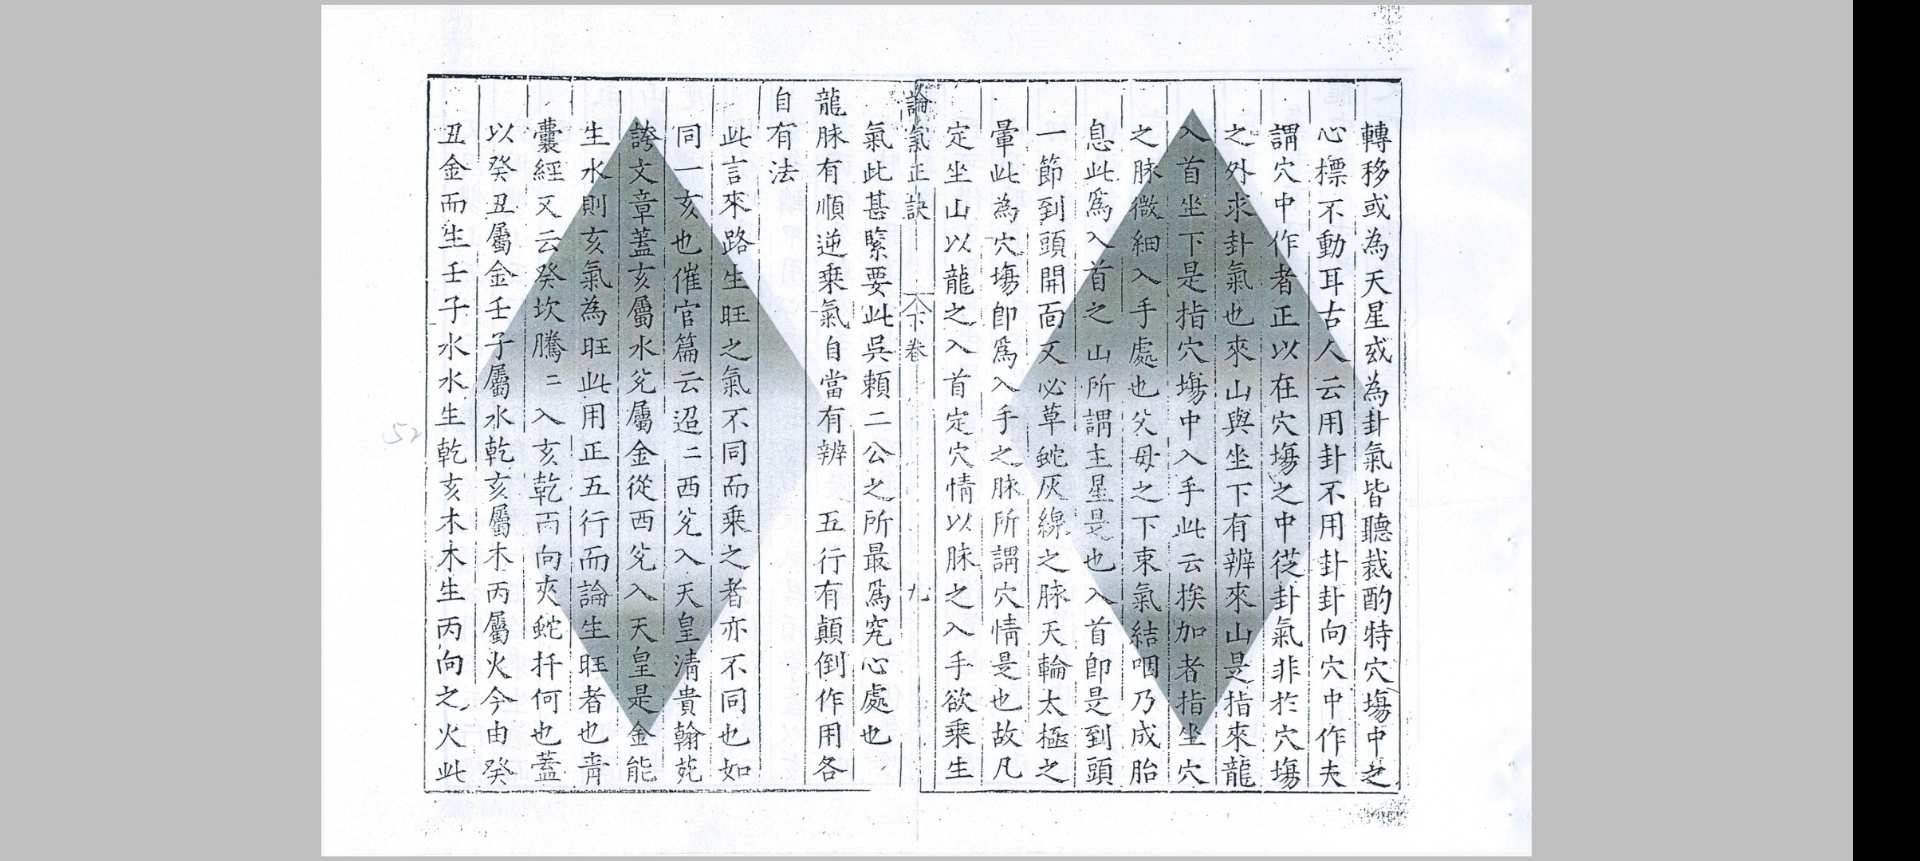 轉移或為天星或為卦氣皆聽裁酌特穴塲中之
心標不動耳古人云用卦不用卦卦向穴中作夫
謂穴中作者正以在穴塲之中從卦氣非扵穴塲
之外求卦氣也來山與坐下有辨來山是指來龍
入首坐下是指穴塲中入手此云挨加者指坐穴
之脉微細入手處也父母之下束氣結咽乃成胎
息此爲入首之山所謂主星是也入首卽是到頭
一節到頭開面又必草蛇灰線之脉天輪太極之
暈此為穴塲卽爲入手之脉所謂穴情是也故凡
定坐山以龍之入首定穴情以脉之入手欲乘生
論氣正訣 下卷 九
氣此甚緊要此吳頼二公之所最爲究心處也
龍脉有順逆乘氣自當有辨 五行有顛倒作用各
自有法
此言來路生旺之氣不同而乘之者亦不同也如
同一亥也催官篇云迢〻西兊入天皇清貴翰苑
誇文章蓋亥屬水兊屬金從西兊入天皇是金能
生水則亥氣為旺此用正五行而論生旺者也青
囊經又云癸坎騰〻入亥乾丙向夾蛇扦何也蓋
以癸丑屬金壬子屬水乾亥屬木丙屬火今由癸
丑金而生壬子水水生乾亥木木生丙向之火此
52